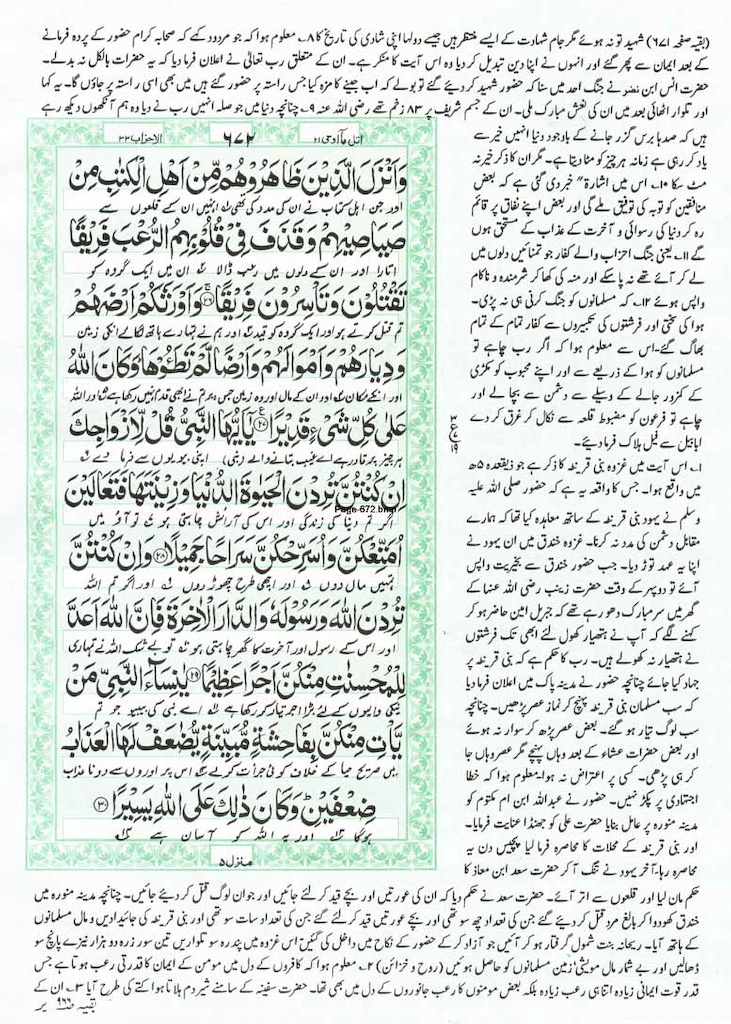 (بقیہ صفحہ ۶۷۱) شہید تو نہ ہوئے مگر جام شہادت کے ایسے منتظر ہیں جیسے دولہا اپنی شادی کی تاریخ کا ۸؎ معلوم ہوا کہ جو مردود کہے کہ صحابہ کرام حضور کے پردہ فرمانے
کے بعد ایمان سے پھر گئے اور انہوں نے اپنا دین تبدیل کر دیا وہ اس آیت کا منکر ہے۔ ان کے متعلق رب تعالیٰ نے اعلان فرما دیا کہ یہ حضرات بالکل نہ بدلے۔
حضرت انس ابن نضر نے جنگ احد میں سنا کہ حضور شہید کر دیئے گئے تو بولے کہ اب جینے کا مزہ کیا جس راستہ پر حضور گئے ہیں میں بھی اسی راستہ پر جاؤں گا۔ یہ کہا
اور تلوار اٹھائی بعد میں ان کی نعش مبارک ملی۔ ان کے جسم شریف پر ۸۳ زخم تھے رضی اللہ عنہ ۹؎ چنانچہ دنیا میں جو صلہ انہیں رب نے دیا وہ ہم آنکھوں دیکھ رہے
ہیں کہ صدہا برس گزر جانے کے باوجود دنیا انہیں خیر سے
یاد کر رہی ہے زمانہ ہر چیز کو مٹا دیتا ہے۔ مگر ان کا ذکر خیر نہ
مٹ سکا ۱۰؎ اس میں اشارۃً خبر دی گئی ہے کہ بعض
منافقین کو توبہ کی توفیق ملے گی اور بعض اپنے نفاق پر قائم
رہ کر دنیا کی رسوائی و آخرت کے عذاب کے مستحق ہوں
گے ۱۱؎ یعنی جنگ احزاب والے کفار جو تمنائیں دلوں میں
لے کر آئے تھے نہ پا سکے اور منہ کی کھا کر شرمندہ و ناکام
واپس ہوئے ۱۲؎ کہ مسلمانوں کو جنگ کرنی ہی نہ پڑی۔
ہوا کی سختی اور فرشتوں کی تکبیروں سے کفار تمام کے تمام
بھاگ گئے۔ اس سے معلوم ہوا کہ اگر رب چاہے تو
مسلمانوں کو ہوا کے ذریعے سے اور اپنے محبوب کو مکڑی
کے کمزور جالے کے وسیلے سے دشمن سے بچالے اور
چاہے تو فرعون کو مضبوط قلعہ سے نکال کر غرق کر دے
ابابیل سے فیل ہلاک فرما دیئے۔
۱؎ اس آیت میں غزوہ بنی قریظہ کا ذکر ہے جو ذیقعدہ ۵ھ
میں واقع ہوا۔ جس کا واقعہ یہ ہے کہ حضور صلی اللہ علیہ
وسلم نے یہود بنی قریظہ کے ساتھ معاہدہ کیا تھا کہ ہمارے
مقابل دشمن کی مدد نہ کرنا۔ غزوہ خندق میں ان یہود نے
اپنا یہ عہد توڑ دیا۔ جب حضور خندق سے بخیریت واپس
آئے تو دوپہر کے وقت حضرت زینب رضی اللہ عنہا کے
گھر میں سر مبارک دھو رہے تھے کہ جبریل امین حاضر ہو کر
کہنے لگے کہ آپ نے ہتھیار کھول لئے ابھی تک فرشتوں
نے ہتھیار نہ کھولے ہیں۔ رب کا حکم ہے کہ بنی قریظہ پر
جہاد کیا جائے چنانچہ حضور نے مدینہ پاک میں اعلان فرما دیا
کہ سب مسلمان بنی قریظہ پہنچ کر نماز عصر پڑھیں۔ چنانچہ
سب لوگ تیار ہو گئے۔ بعض عصر پڑھ کر سوار نہ ہوئے
اور بعض حضرات عشاء کے بعد وہاں پہنچے مگر عصر وہاں جا
کر ہی پڑھی۔ کسی پر اعتراض نہ ہوا۔ معلوم ہوا کہ خطا
اجتہادی پر پکڑ نہیں۔ حضور نے عبداللہ ابن ام مکتوم کو
مدینہ منورہ پر عامل بنایا حضرت علی کو جھنڈا عنایت فرمایا۔
اور بنی قریظہ کے محلات کا محاصرہ فرما لیا پچیس دن یہ
محاصرہ رہا۔ آخر یہود نے تنگ آ کر حضرت سعد ابن معاذ کا
اتل ما اوحی ۲۱
۶۷۲
الاحزاب ۳۳
وَاَنْزَلَ الَّذِيْنَ ظَاهَرُوْهُمْ مِّنْ اَهْلِ الْكِتٰبِ مِنْ
اور جن اہل کتاب نے ان کی مدد کی تھی انہیں ان کے قلعوں سے
صَيَاصِيْهِمْ وَقَذَفَ فِيْ قُلُوْبِهِمُ الرُّعْبَ فَرِيْقًا
اتارا اور ان کے دلوں میں رعب ڈالا ان میں ایک گروہ کو
تَقْتُلُوْنَ وَتَاْسِرُوْنَ فَرِيْقًا ۝۲۶ وَاَوْرَثَكُمْ اَرْضَهُمْ
تم قتل کرتے ہو اور ایک گروہ کو قید اور ہم نے تمہارے ہاتھ لگائے انکی زمین
وَدِيَارَهُمْ وَاَمْوَالَهُمْ وَاَرْضًا لَّمْ تَطَـُٔوْهَا وَكَانَ اللّٰهُ
اور انکے مکان اور ان کے مال اور وہ زمین جس پر تم نے ابھی قدم نہیں رکھا ہے اور اللہ
عَلٰى كُلِّ شَيْءٍ قَدِيْرًا ۝۲۷ يٰۤاَيُّهَا النَّبِيُّ قُلْ لِّاَزْوَاجِكَ
ہر چیز پر قادر ہے اے غیب بتانے والے (نبی) اپنی بیویوں سے فرما دے
اِنْ كُنْتُنَّ تُرِدْنَ الْحَيٰوةَ الدُّنْيَا وَزِيْنَتَهَا فَتَعَالَيْنَ
Page 672.bmp
اگر تم دنیا کی زندگی اور اس کی آرائش چاہتی ہو تو آؤ میں
اُمَتِّعْكُنَّ وَاُسَرِّحْكُنَّ سَرَاحًا جَمِيْلًا ۝۲۸ وَاِنْ كُنْتُنَّ
تمہیں مال دوں اور اچھی طرح چھوڑ دوں اور اگر تم اللہ
تُرِدْنَ اللّٰهَ وَرَسُوْلَهٗ وَالدَّارَ الْاٰخِرَةَ فَاِنَّ اللّٰهَ اَعَدَّ
اور اس کے رسول اور آخرت کا گھر چاہتی ہو تو بے شک اللہ نے تمہاری
لِلْمُحْسِنٰتِ مِنْكُنَّ اَجْرًا عَظِيْمًا ۝۲۹ يٰنِسَآءَ النَّبِيِّ مَنْ
نیکی والیوں کے لئے بڑا اجر تیار کر رکھا ہے اے نبی کی بیبیو جو تم
يَّاْتِ مِنْكُنَّ بِفَاحِشَةٍ مُّبَيِّنَةٍ يُّضٰعَفْ لَهَا الْعَذَابُ
میں صریح حیا کے خلاف کوئی جرأت کرے اس پر اوروں سے دونا عذاب
ضِعْفَيْنِ وَكَانَ ذٰلِكَ عَلَى اللّٰهِ يَسِيْرًا ۝۳۰
ہوگا اور یہ اللہ کو آسان ہے
منزل ۵
۳
ع
۱۹
حکم مان لیا اور قلعوں سے اتر آئے۔ حضرت سعد نے حکم دیا کہ ان کی عورتیں اور بچے قید کر لئے جائیں اور جوان لوگ قتل کر دیئے جائیں۔ چنانچہ مدینہ منورہ میں
خندق کھودوا کر بالغ مرد قتل کر دیئے گئے جن کی تعداد چھ سو تھی اور بچے عورتیں قید کر لئے گئے جن کی تعداد سات سو تھی اور بنی قریظہ کی جائیدادیں و مال مسلمانوں
کے ہاتھ آیا۔ ریحانہ بنت شمول گرفتار ہو کر آئیں جو آزاد کر کے حضور کے نکاح میں داخل کی گئیں اس غزوہ میں پندرہ سو تلواریں تین سو زرہ دو ہزار نیزے پانچ سو
ڈھالیں اور بے شمار مال مویشی زمین مسلمانوں کو حاصل ہوئیں (روح و خزائن) ۲؎ معلوم ہوا کہ کافروں کے دل میں مومن کے ایمان کا قدرتی رعب ہوتا ہے جس
قدر قوت ایمانی زیادہ اتنا ہی رعب زیادہ بلکہ بعض مومنوں کا رعب جانوروں کے دل میں بھی تھا۔ حضرت سفینہ کے سامنے شیر دم ہلاتا ہوا کتے کی طرح آیا ۳؎ ان کے
بقیہ صفحہ ۹۶۶ پر